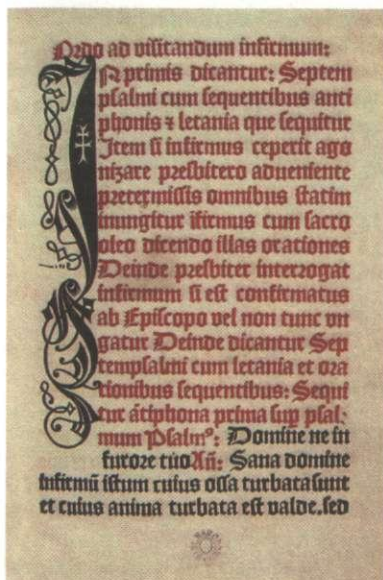 Ordo ad visitandum infirmum:
IN primis dicantur: Septem
psalmi cum sequentibus anti
phonis ⁊ letania que sequitur
Item si infirmus ceperit ago
nizare presbitero adueniente
pretermissis omnibus statim
inungitur ifirmus cum sacro
oleo dicendo illas orationes
Deinde presbiter interrogat
infirmum si est confirmatus
ab Episcopo vel non tunc vn
gatur Deinde dicantur Sep
tempsalmi cum letania et ora
tionibus sequentibus: Sequi
tur ātiphona prima sup psal-
mum Psalmꝰ: Domine ne in
furore tuo Añ: Sana domine
infirmū istum cuius ossa turbata sunt
et cuius anima turbata est valde. sed